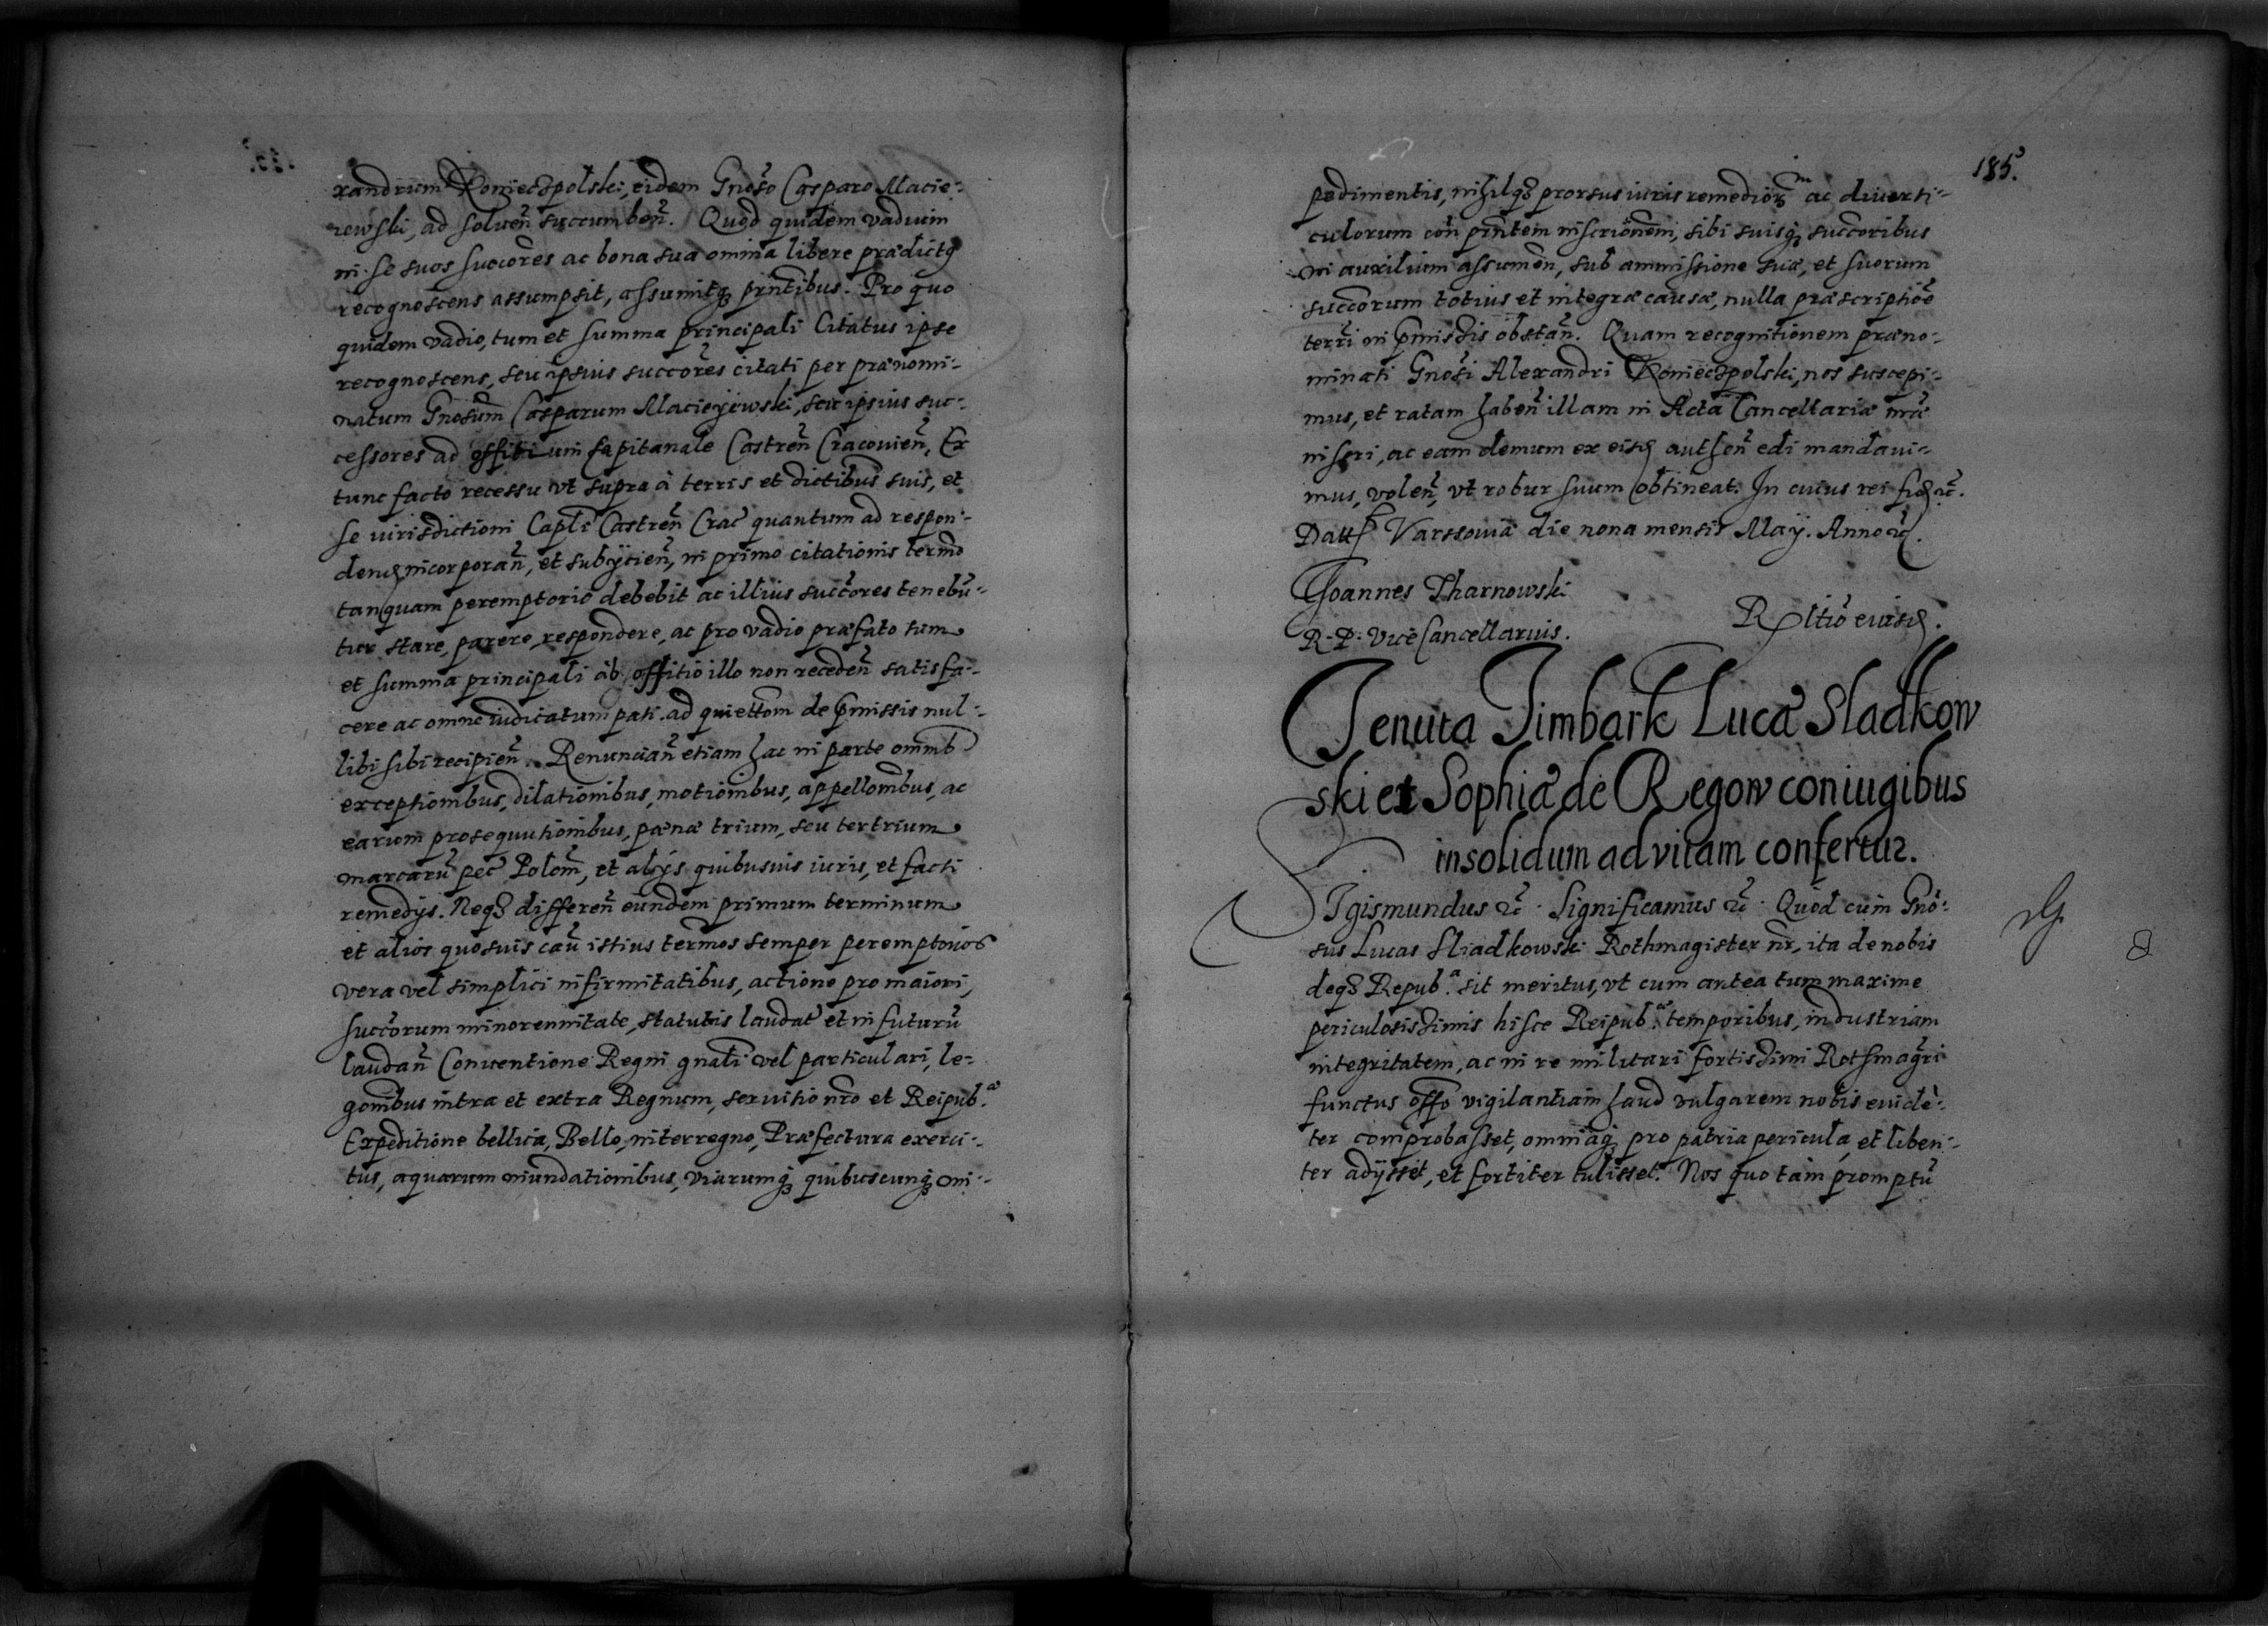 xandrum Konieczpolski, eidem Gnoso Casparo Macie-
iewski, ad soluen̄ succumben̄. Quod quidem vadium
in se suos succores ac bona sua omnia libere prædictq
recognoscens assumpsit, assumitq3 pr̄ntibus. Pro quo
quidem vadio, tum et summa principali Citatus ipse
recognoscens, seu ipsius succores citati per prænomi-
natum Gnosum Casparum Macieyiewski, seu ipsius suc-
cessores ad offitium Capitanale Castren̄ Cracouien̄, Ex
tunc facto recessu vt supra à terris et dictibus suis, et
se iurisdictioni Capli Castren̄ Crac̄ quantum ad respon-
dend incorporan̄, et subÿcien̄, in primo citationis termo
tanquam peremptorio debebit ac illius succores tenebu-
tur stare, parere, respondere, ac pro vadio præfato tum
et summa principali ab offitio illo non receden̄ satisfa-
cere ac omne iudicatum pati. ad quiettom de p̄missis nul-
libi sibi recipien̄. Renuncian̄ etiam hac in parte omnib
exceptionibus, dilationibus, motionibus, appellombus, ac
earum prosequutionibus, pænæ trium, seu ter trium
marcarū pec̄ Polom, et alÿs quibusuis iuris, et facti
remedÿs. Neq3 differen̄ eundem primum terminum
et alios quosuis caū istius termos semper peremptorios
vera vel simplici infirmitatibus, actione pro maiori,
succorum minorennitate, statutis laudat̄ et in futurū
laudan̄ Conuentione Regni gnali vel particulari, le-
gombus intra et extra Regnum, seruitio nr̄o et Reipub.æ
Expeditione bellica, Bello, interregno, Præfectura exerci-
tus, aquarum inundationibus, viarumq3 quibuscunq3 im-
185.
pedimentis, nihilq3 prorsus iuris remediorum ac diuerti-
culorum con̄ pr̄ntem inscrionem, sibi suisq3 succoribus
in auxilium assumen̄, sub ammissione suæ, et suorum
succorum totius et integræ causæ, nulla præscriptioe
terri in p̄missis obstan̄. Quam recognitionem præno-
minati Gnosi Alexandri Koniecpolski, nos suscepi-
mus, et ratam haben̄ illam in Acta Cancellariæ nr̄æ
inseri, ac eam demum ex eisd authen̄ edi mandaui-
mus, volen̄, vt robur suum obtineat. In cuius rei fid &c̄.
Datt Varssouiæ die nona mensis Maÿ. Anno &c.
Joannes Tharnowski
R. P. Vice Cancellarius.
R ltio eiusd.
Tenuta Timbark Lucæ Sladkow
ski et Sophiæ de Regow coniugibus
insolidum ad vitam confertur.
Sigismundus &c̄. Significamus &c̄. Quod cum Gno-
sus Lucas Sliadkowski Rothmagister nr̄, ita de nobis
deq3 Repub.a sit meritus, vt cum antea tum maxime
periculosissimis hisce Reipub.æ temporibus, industriam
integritatem, ac in re militari fortissimi Rothmagri
functus offo vigilantiam haud vulgarem nobis euidē-
ter comprobasset, omniaq3 pro patria pericula, et liben-
ter adÿsset, et fortiter tulisset. Nos quo tam promptū